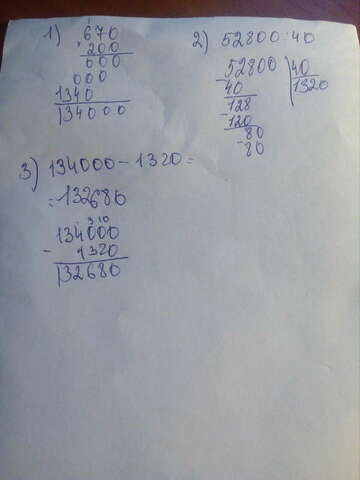 1) 670
× 200
000
000
1340
134000
2) 52800:40
52800 | 40
40 | 1320
-128
120
-80
-80
3) 134000-1320=
=132680
3 10
134000
- 1320
132680